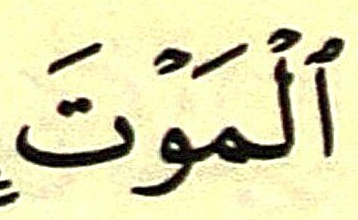 ٱلْمَوْتَ